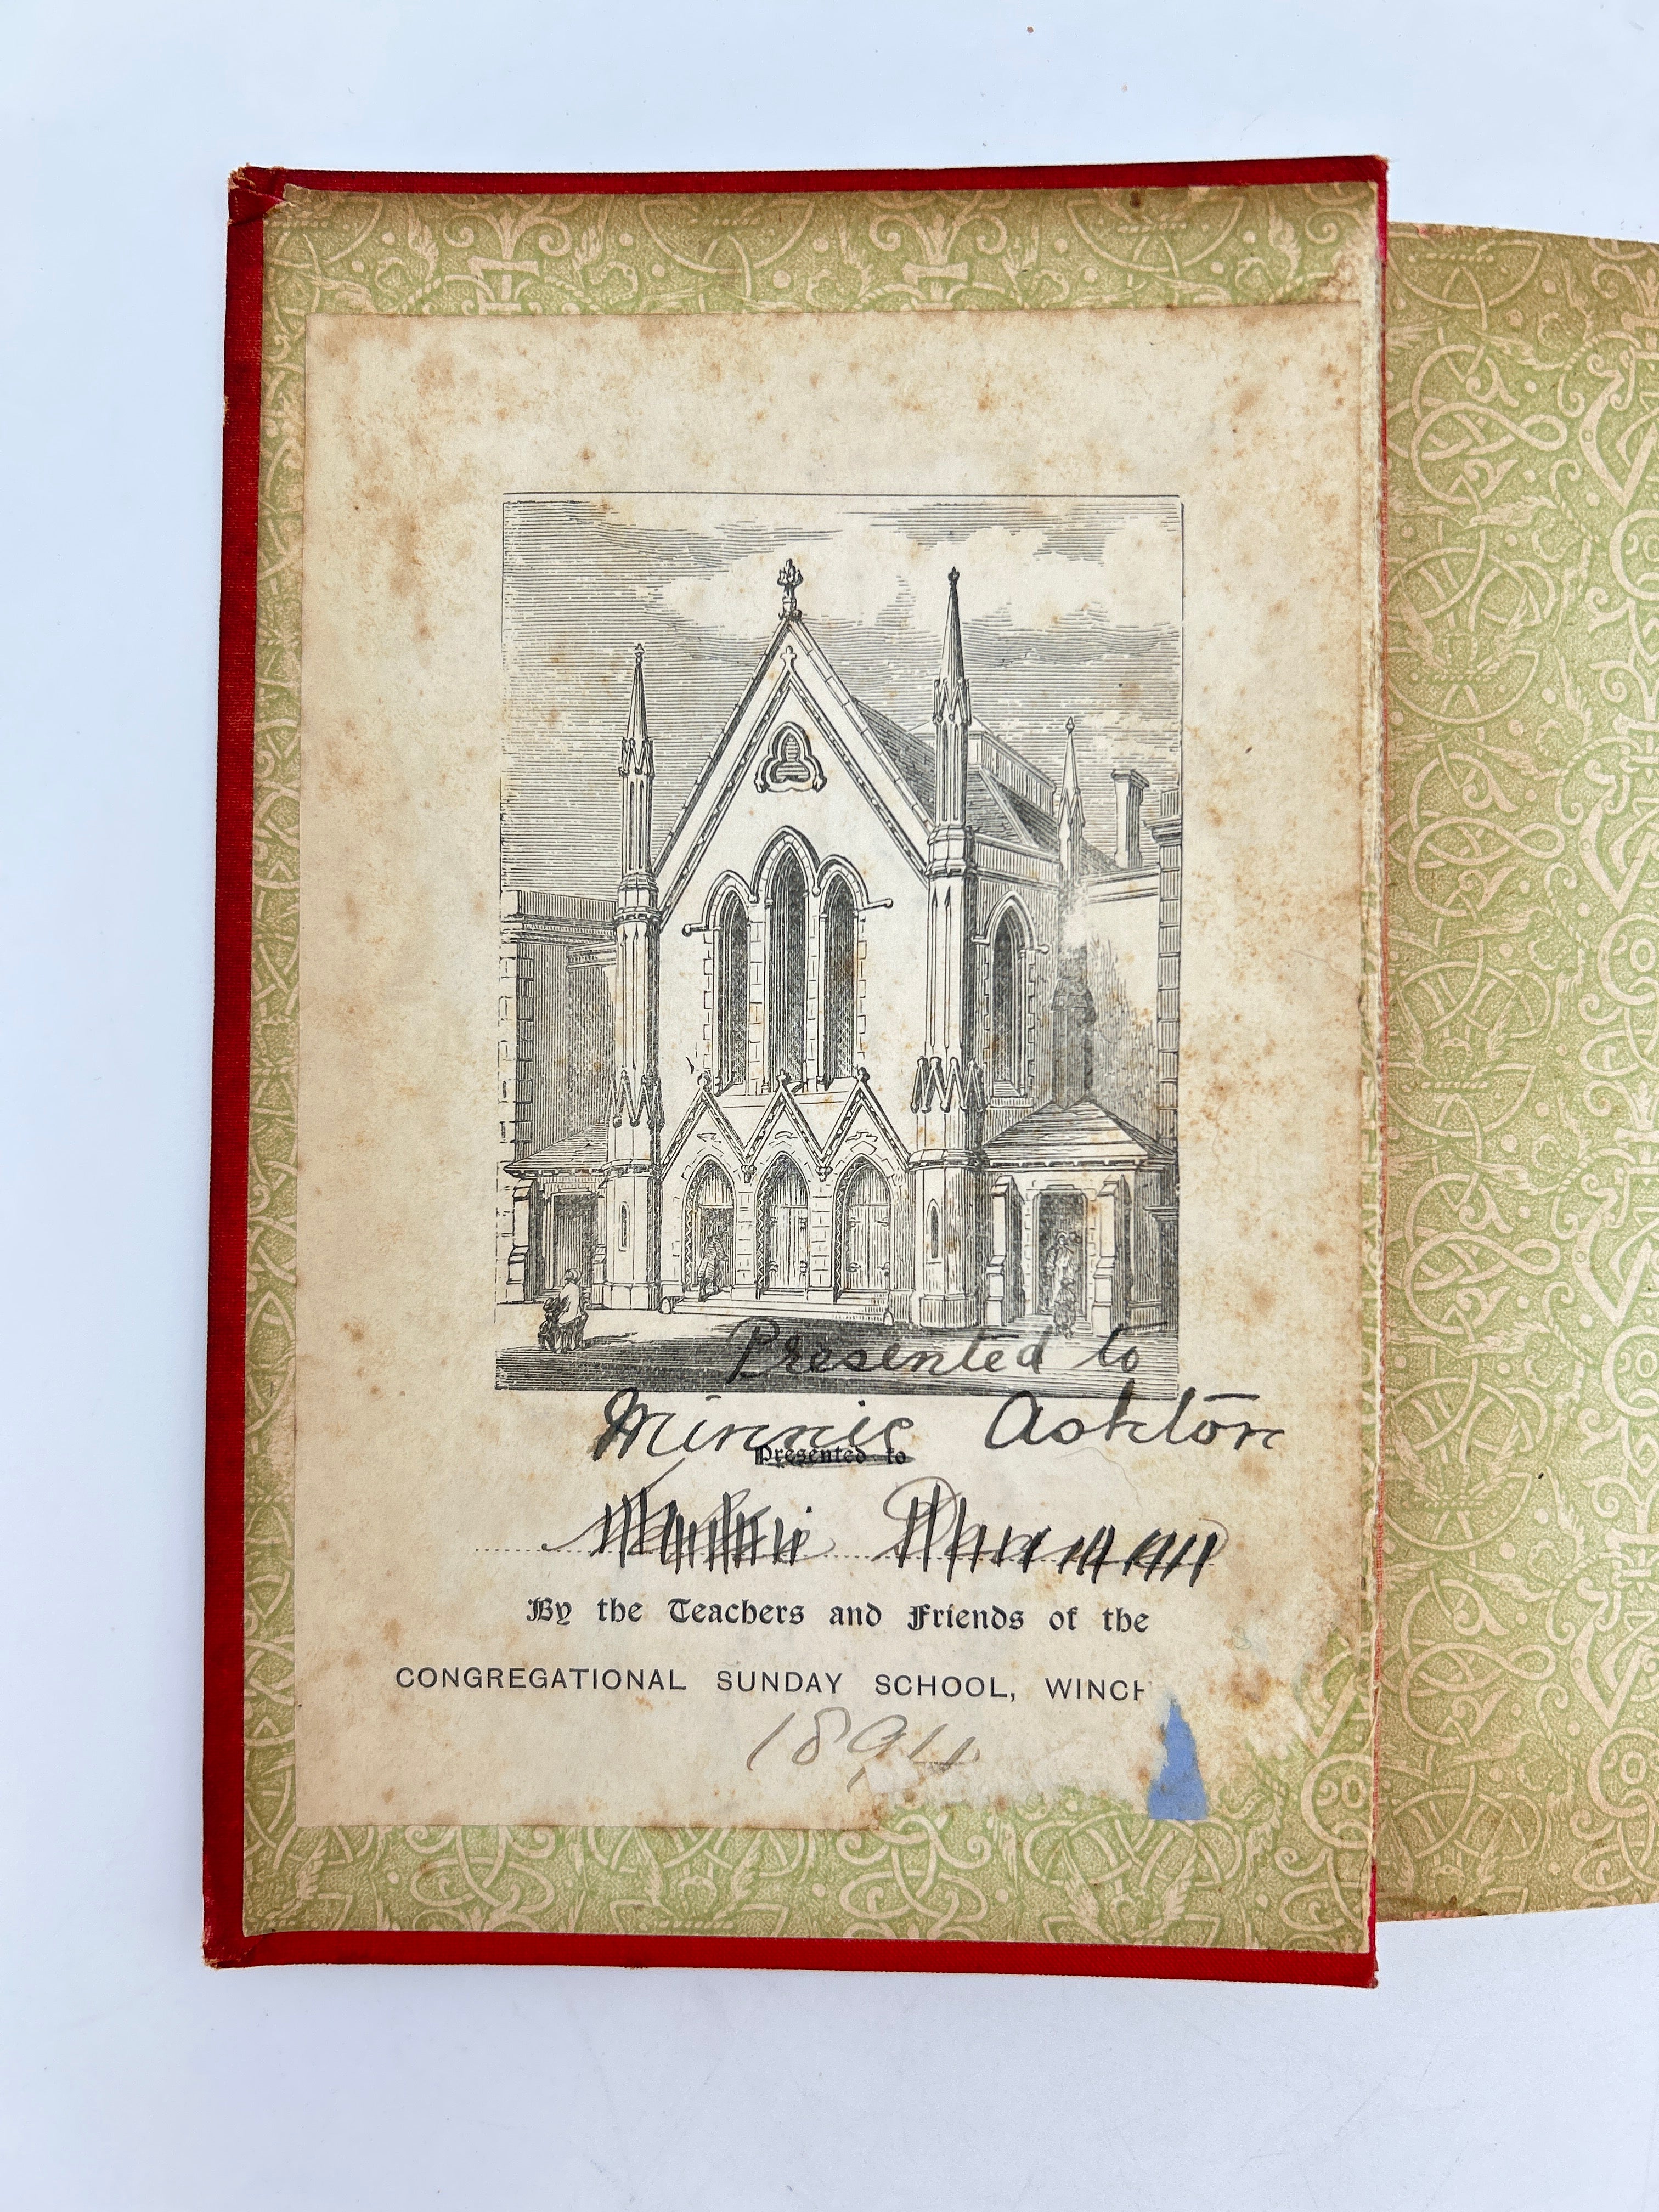 Presented to
Minnie Ashton
Presented to
By the Teachers and Friends of the
CONGREGATIONAL SUNDAY SCHOOL, WINCH
1894